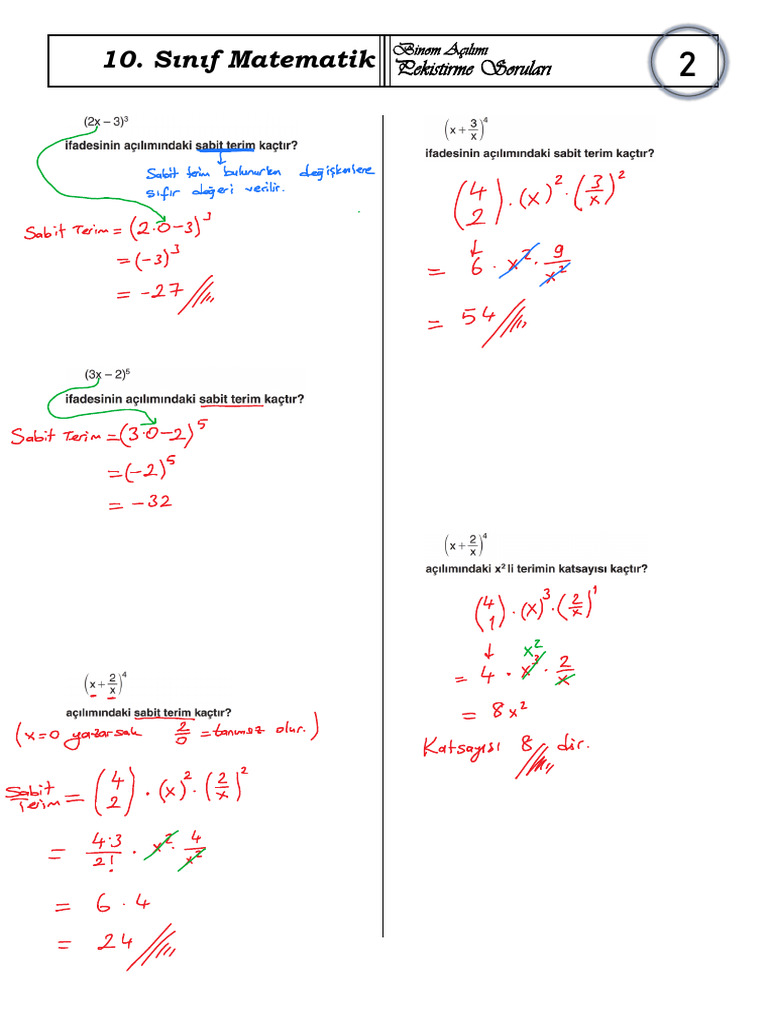 10. Sınıf Matematik
Binom Açılımı
Pekistirme Soruları
2
(2x – 3)³
ifadesinin açılımındaki sabit terim kaçtır?
Sabit terim bulunurken değişkenlere
sıfır değeri verilir.
Sabit Terim = (2·0–3)³
= (–3)³
= –27
(3x – 2)⁵
ifadesinin açılımındaki sabit terim kaçtır?
Sabit Terim = (3·0–2)⁵
= (–2)⁵
= –32
(x + 2/x)⁴
açılımındaki sabit terim kaçtır?
(x=0 yazarsak 2/0 = tanımsız olur.)
Sabit Terim = (4 2) · (x)² · (2/x)²
= 4·3/2! · x² · 4/x²
= 6 · 4
= 24
(x + 3/x)⁴
ifadesinin açılımındaki sabit terim kaçtır?
(4 2) · (x)² · (3/x)²
= 6 · x² · 9/x²
= 54
(x + 2/x)⁴
açılımındaki x² li terimin katsayısı kaçtır?
(4 1) · (x)³ · (2/x)¹
x²
= 4 · x³ · 2/x
= 8x²
Katsayısı 8 dir.